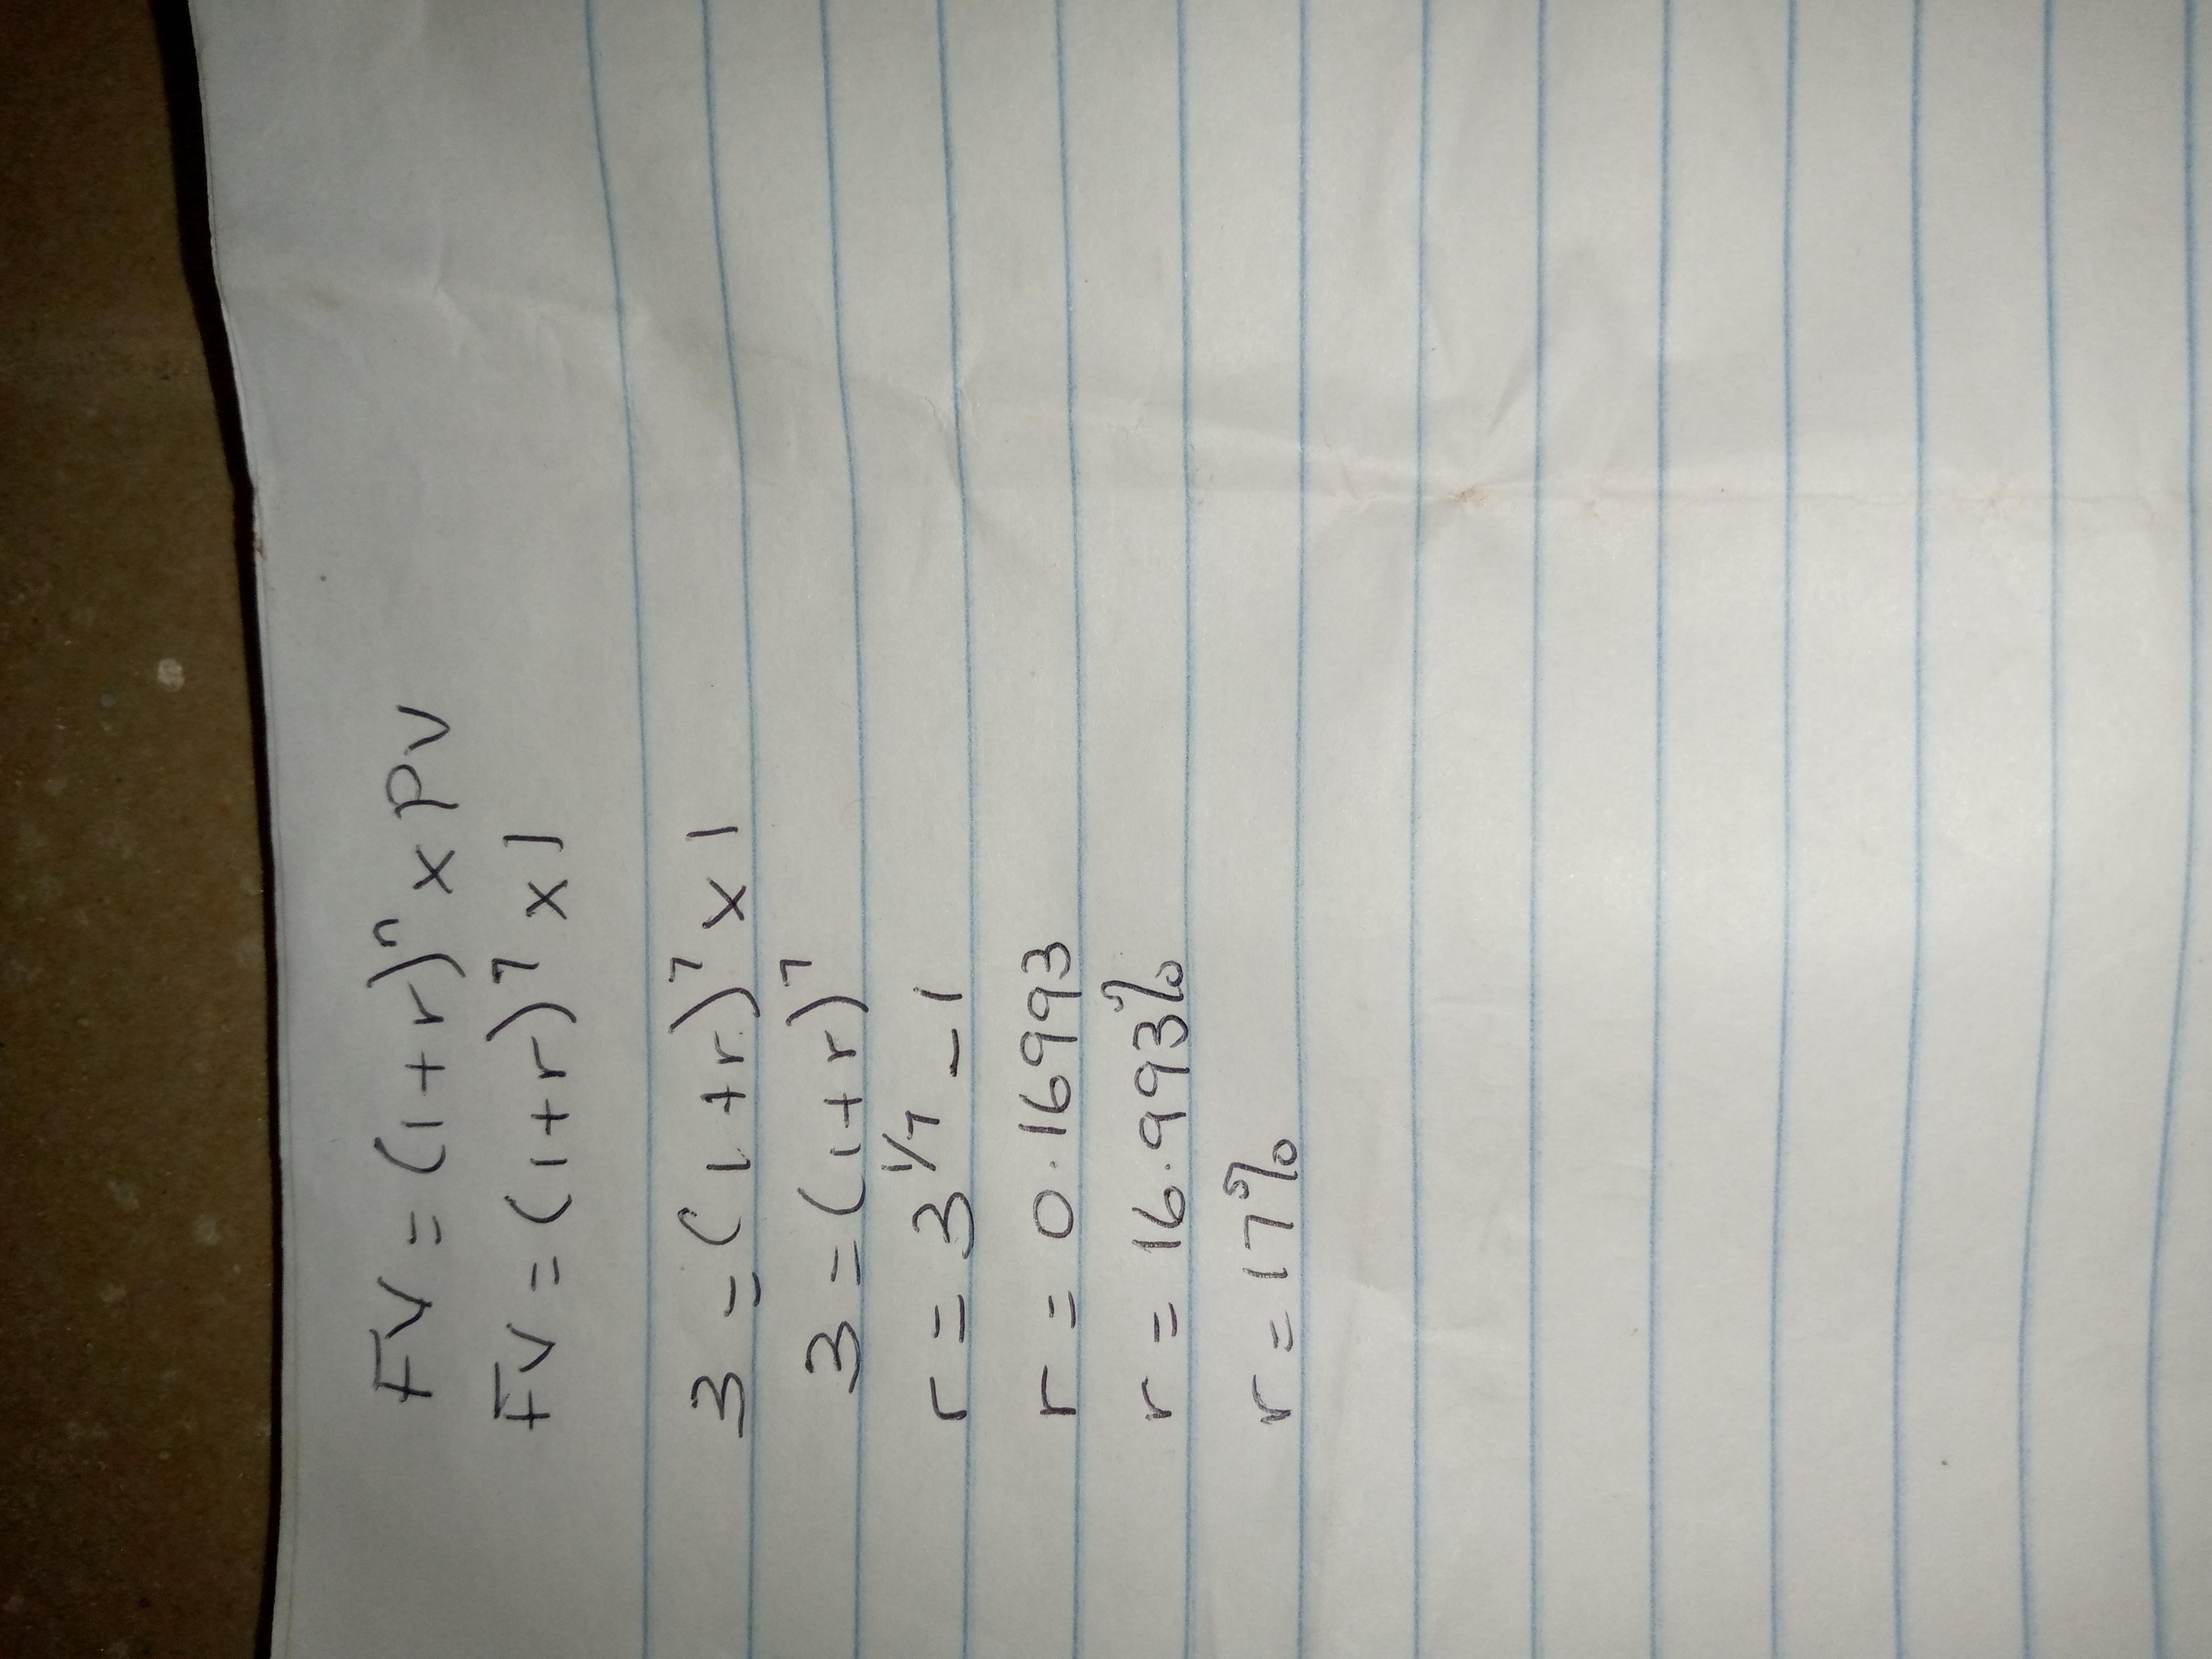 FV = (1+r)ⁿ x PV
FV = (1+r)⁷ x 1
3 = (1+r)⁷ x 1
3 = (1+r)⁷
r = 3^1/7 - 1
r = 0.16993
r = 16.993%
r = 17%